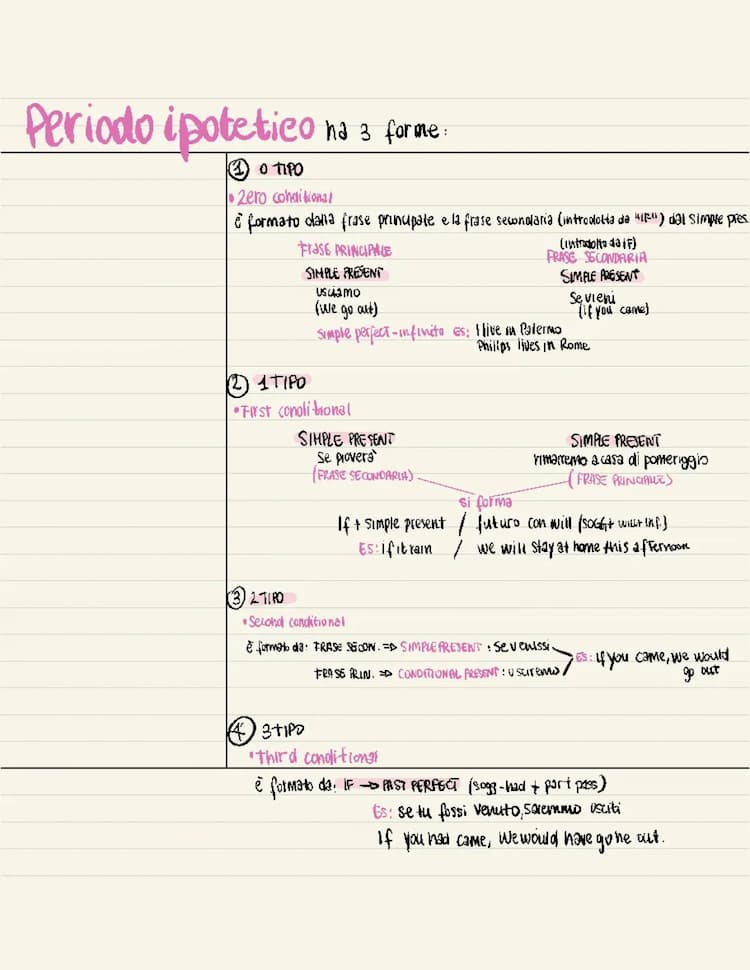 Periodo ipotetico ha 3 forme:
1 0 TIPO
• Zero conditional
è formato dalla frase principale e la frase secondaria (introdotta da "IF") dal simple pres
FRASE PRINCIPALE
SIMPLE PRESENT
usciamo
(we go out)
(introdotto da IF)
FRASE SECONDARIA
SIMPLE PRESENT
Se vieni
(if you came)
Simple perfect-infinito Es: I live in Palermo
Philips lives in Rome
2 1 TIPO
• First conditional
SIMPLE PRESENT
Se pioverà
(FRASE SECONDARIA)
SIMPLE PRESENT
rimarremo a casa di pomeriggio
(FRASE PRINCIPALE)
si forma
If + simple present / futuro con will (SOGG+ WILL+ Inf.)
Es: if it rain / we will stay at home this afternoon
3 2 TIPO
• Second conditional
è formato da: FRASE SECON. => SIMPLE PRESENT : Se venissi
FRASE PRIN. => CONDITIONAL PRESENT : usciremo
Es: if you came, we would
go out
4 3 TIPO
• Third conditional
è formato da: IF → PAST PERFECT (sogg-had + part pass)
Es: se tu fossi venuto, saremmo usciti
If you had came, we would have gone out.